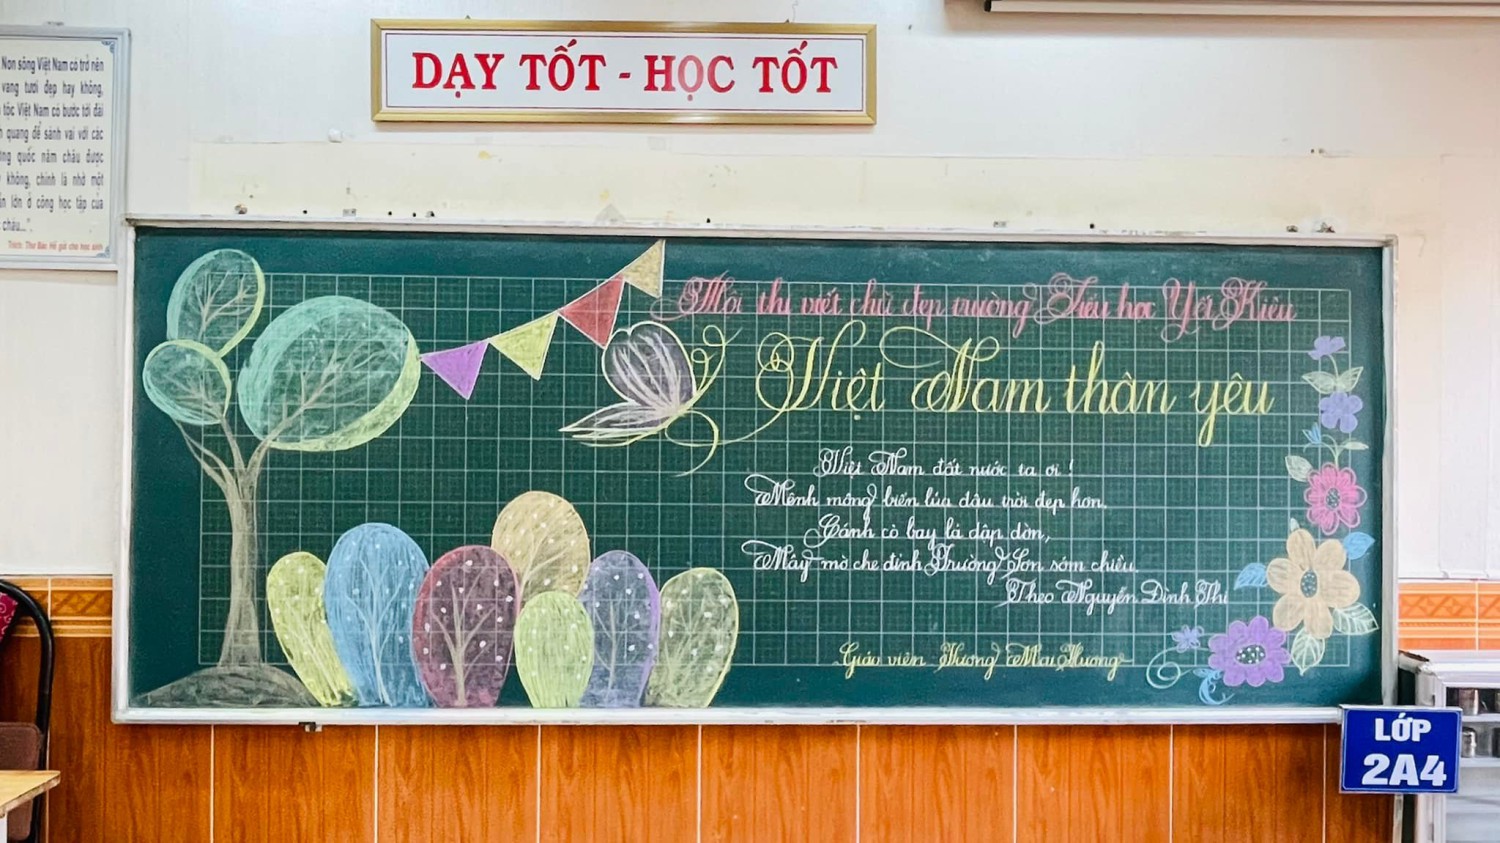 DẠY TỐT - HỌC TỐT
Non sông Việt Nam có trở nên
vang tươi đẹp hay không,
tộc Việt Nam có bước tới đài
quang để sánh vai với các
quốc năm châu được
không, chính là nhờ một
lớn ở công học tập của
cháu...".
Trích: Thư Bác Hồ gửi cho học sinh
Hội thi viết chữ đẹp trường Tiểu học Yết Kiêu
Việt Nam thân yêu
Việt Nam đất nước ta ơi !
Mênh mông biển lúa đâu trời đẹp hơn.
Cánh cò bay lả dập dờn,
Mây mờ che đỉnh Trường Sơn sớm chiều.
Theo Nguyễn Đình Thi
Giáo viên Hương Mai Hương
LỚP
2A4